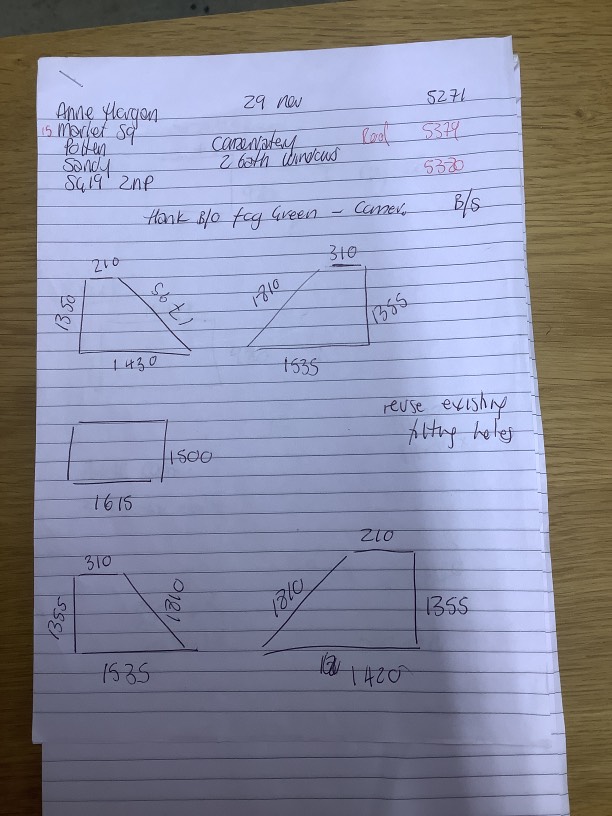 29 nov 5271
Anne
15 Market Sq 5379
Potten
2 both windows
Sandy 5380
SG19 2NP
B/o Green - B/S
210
1350
1795
1430
310
1810
1355
1535
reuse existing
fitting holes
1500
1615
310
1355
1810
1535
210
1810
1355
1420